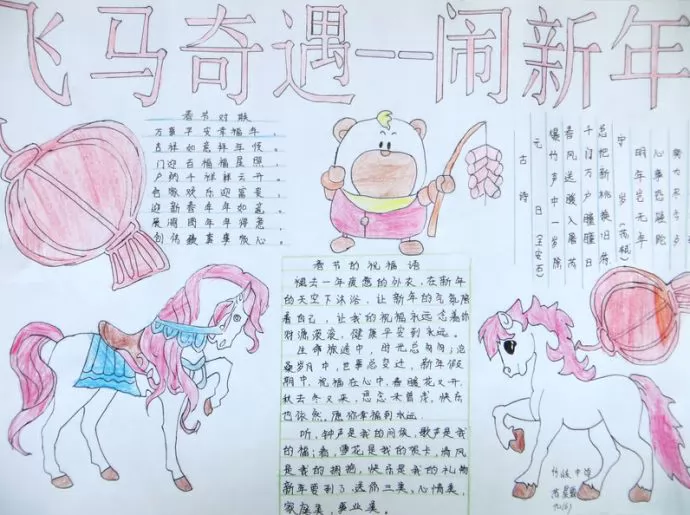 飞马奇遇——闹新年
春节对联
万事平安幸福年。
吉祥如意祥年恒。
门迎百福福星照。
户纳千祥祥云开。
合家欢乐迎富贵。
迎新春年年如意。
创伟业事事恢心。
元日(王安石)
古诗
爆竹声中一岁除
春风送暖入屠苏
千门万户曈曈日
总把新桃换旧符
守岁(苏轼)
明年岂无年
心事恐蹉跎
春节的祝福语
褪去一年疲惫的外衣，在新年
的天空下沐浴，让新年的气氛陪
着自己，让我的祝福永远念着你
财源滚滚，健康平安到永远。
生命旅途中，时光总匆匆；沧
桑岁月中，世事总变迁，新年假
期中，祝福在心中，春暖花又开，
秋去冬又来，思念未曾老，快乐
仍依然。愿你幸福到永远。
听，钟声是我的问候，歌声是我
的福；看，雪花是我的贺卡，清风
是我的拥抱，快乐是我的礼物
新年要到了，送你三美。心情美，
家庭美，事业美。
中学